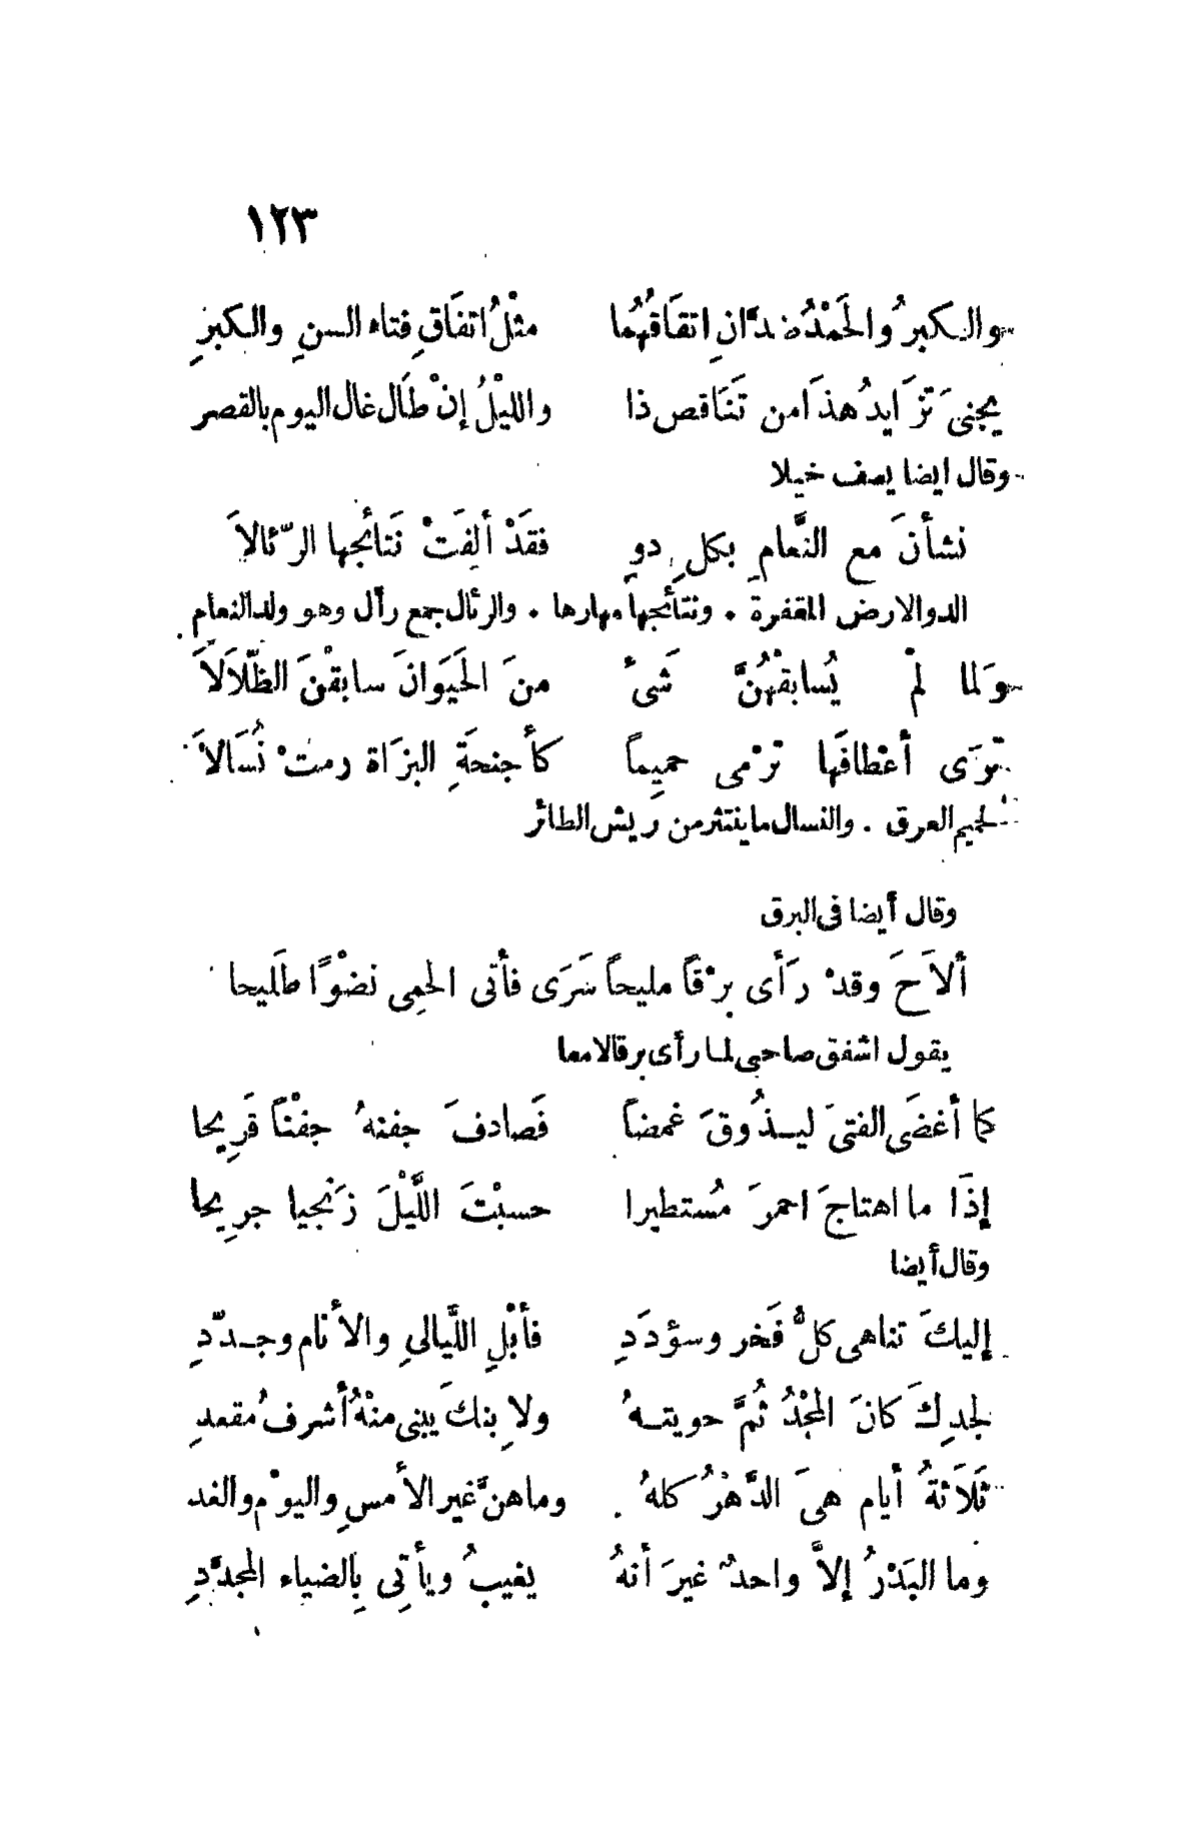 ١٢٣
والكبرُ والحَمْدُ ضدَّانِ اتقَاقُهُما مثْلُ اتفَاقِ فتاء السنِ والكبرِ
يجنىَ تزَايدُ هذَا من تَنَاقص ذا والليْلُ إنْ طَال غال اليوم بالقصر
وقال ايضا يصف خيلا
نشأنَ مع النَّعامِ بكلِ دوٍ فقَدْ ألِفَتْ نَتائجها الرّئالاَ
الدو الارض المقفرة . ونتائجها مهارها . والرئال جمع رأل وهو ولد النعام
وَلما لمْ يُسابقْهُنَّ شَىءٌ منَ الحَيَوَانَ سابقْنَ الظّلَالَاَ
تَرَى أعْطافَها ترْمى حميِماً كأجنحَةِ البزَاة رمتْ نُسَالاَ
الحميم العرق . والنسال ما ينتثر من ريش الطائر
وقال أيضا فى البرق
ألاَحَ وقدْ رَأى برْقاً مليحاً سَرَى فأتى الحِمى نضْوًا طَليحا
يقول اشفق صاحبى لما رأى برقا لامعا
كما أغضَى الفتىَ ليذُوقَ غمضاً فَصادفَ جفنهُ جفْناً قَرِيحا
إذَا ما اهتاجَ احمرَ مُستطيرا حسبْتَ اللَّيْلَ زَنْجيا جرِيحا
وقال أيضا
إليكَ تناهى كلُّ فَخر وسؤدَدِ فأبْلِ اللَّيالىِ والأنام وجدّدِ
لجدِكَ كانَ المَجْدُ ثُمَّ حويتهُ ولاِبنكَ يبنى منْهُ أشرفُ مقعدِ
ثَلَاثةُ أيام هىَ الدَّهْرُ كلهُ وماهنَّ غير الأمسِ واليوْم والغد
وما البَدْرُ إلاَّ واحدٌ غيرَ أنهُ يغيبُ ويأتِى بِالضياء المجدَّدِ